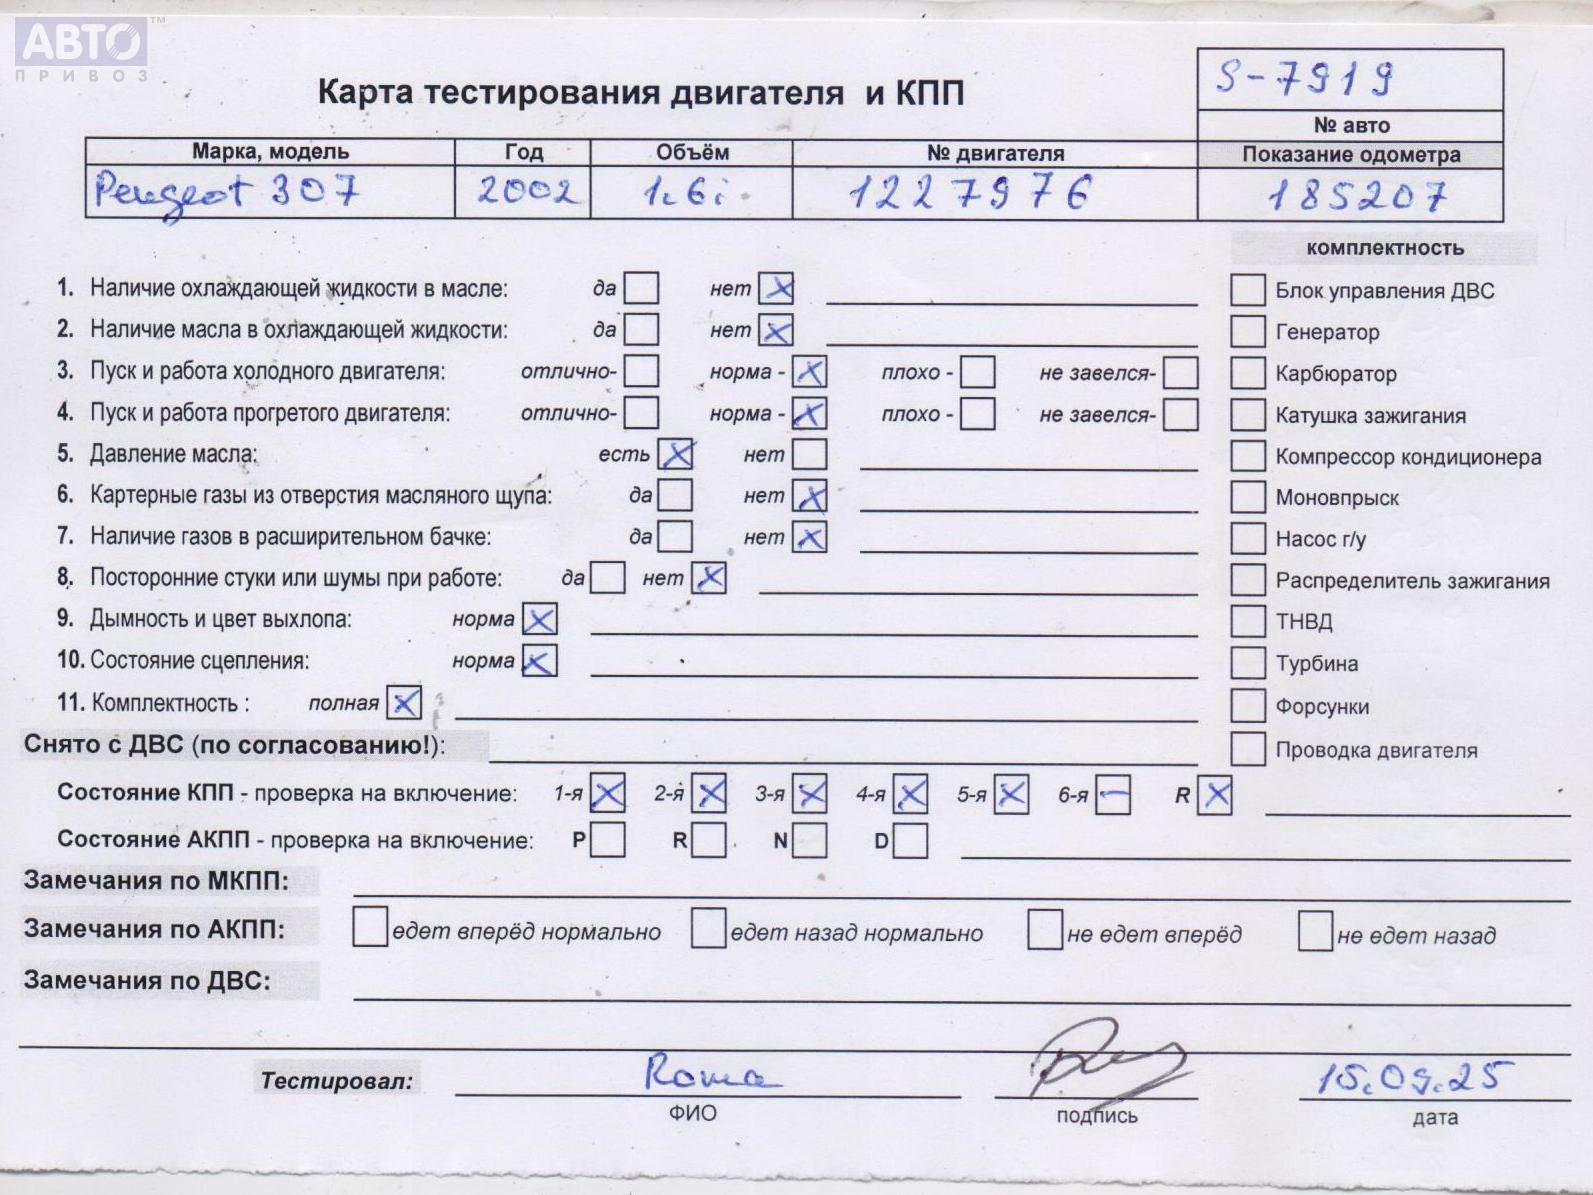 АВТО™
ПРИВОЗ
Карта тестирования двигателя и КПП
S-7919
№ авто
Марка, модель Год Объём № двигателя Показание одометра
Peugeot 307 2002 1.6i 1227976 185207
комплектность
1. Наличие охлаждающей жидкости в масле: да нет X Блок управления ДВС
2. Наличие масла в охлаждающей жидкости: да нет X Генератор
3. Пуск и работа холодного двигателя: отлично- норма - X плохо - не завелся- Карбюратор
4. Пуск и работа прогретого двигателя: отлично- норма - X плохо - не завелся- Катушка зажигания
5. Давление масла: есть X нет Компрессор кондиционера
6. Картерные газы из отверстия масляного щупа: да нет X Моновпрыск
7. Наличие газов в расширительном бачке: да нет X Насос г/у
8. Посторонние стуки или шумы при работе: да нет X Распределитель зажигания
9. Дымность и цвет выхлопа: норма X ТНВД
10. Состояние сцепления: норма X Турбина
11. Комплектность : полная X Форсунки
Снято с ДВС (по согласованию!): Проводка двигателя
Состояние КПП - проверка на включение: 1-я X 2-я X 3-я X 4-я X 5-я X 6-я – R X
Состояние АКПП - проверка на включение: P R N D
Замечания по МКПП:
Замечания по АКПП: едет вперёд нормально едет назад нормально не едет вперёд не едет назад
Замечания по ДВС:
Тестировал: Roma 15.09.25
ФИО подпись дата